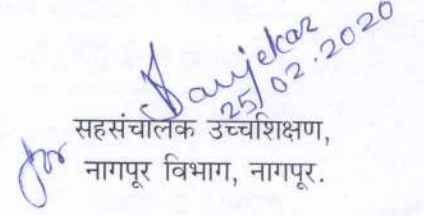 25/02.2020
for
सहसंचालक उच्चशिक्षण,
नागपूर विभाग, नागपूर.